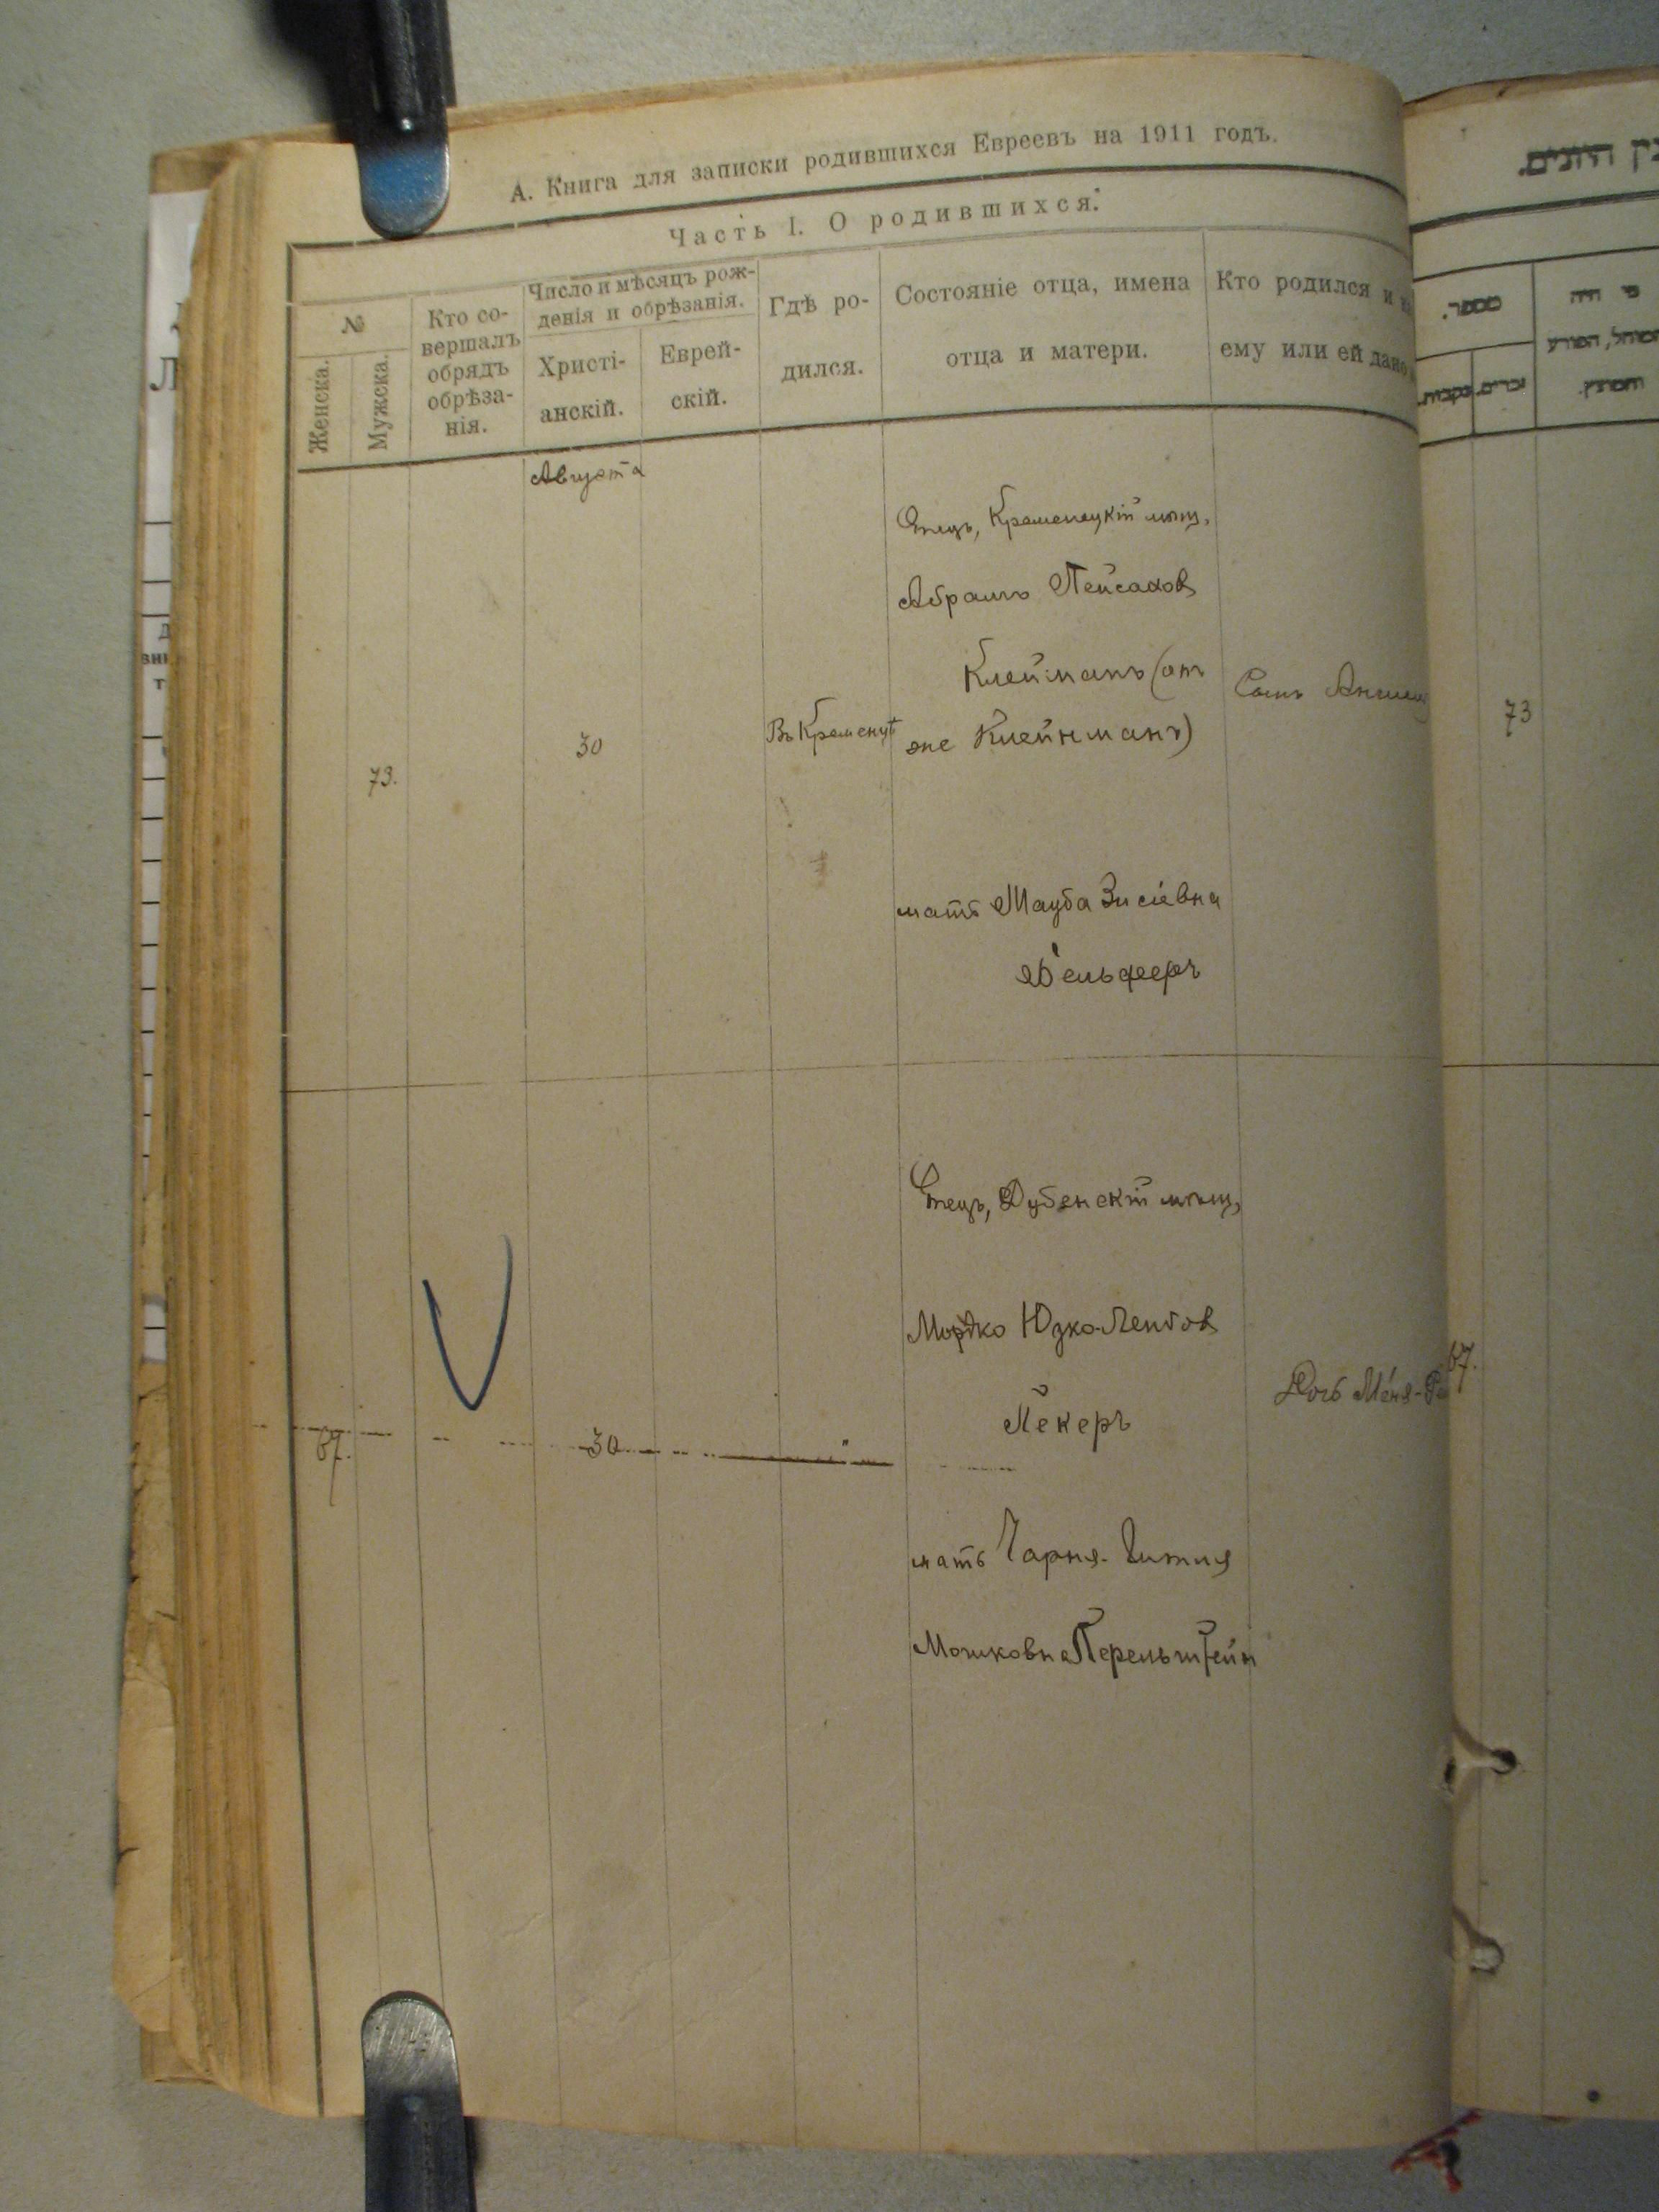 А. Книга для записки родившихся Евреевъ на 1911 годъ.
Часть I. О родившихся.
№
Женска.
Мужска.
Кто со-
вершалъ
обрядъ
обрѣза-
нія.
Число и мѣсяцъ рож-
денія и обрѣзанія.
Христі-
анскій.
Еврей-
скій.
Гдѣ ро-
дился.
Состояніе отца, имена
отца и матери.
Кто родился и
ему или ей дано
Августа
73.
30
Въ Кременцѣ
Отецъ, Кременецкій мѣщ.
Абрамъ Пейсахов
Клейманъ (онъ
же Клейнманъ)
мать Тауба Зисіевна
Сынъ
67.
30
Отецъ, Дубенскій мѣщ,
Мордко Юзко-Лейбов
Пекеръ
мать Чарня-
Мошковна Перельштейн
Дочь Меня-
מספר.
זכרים.
נקבות.
מי היה
המוהל, הפורע
והמוצץ.
73
67.